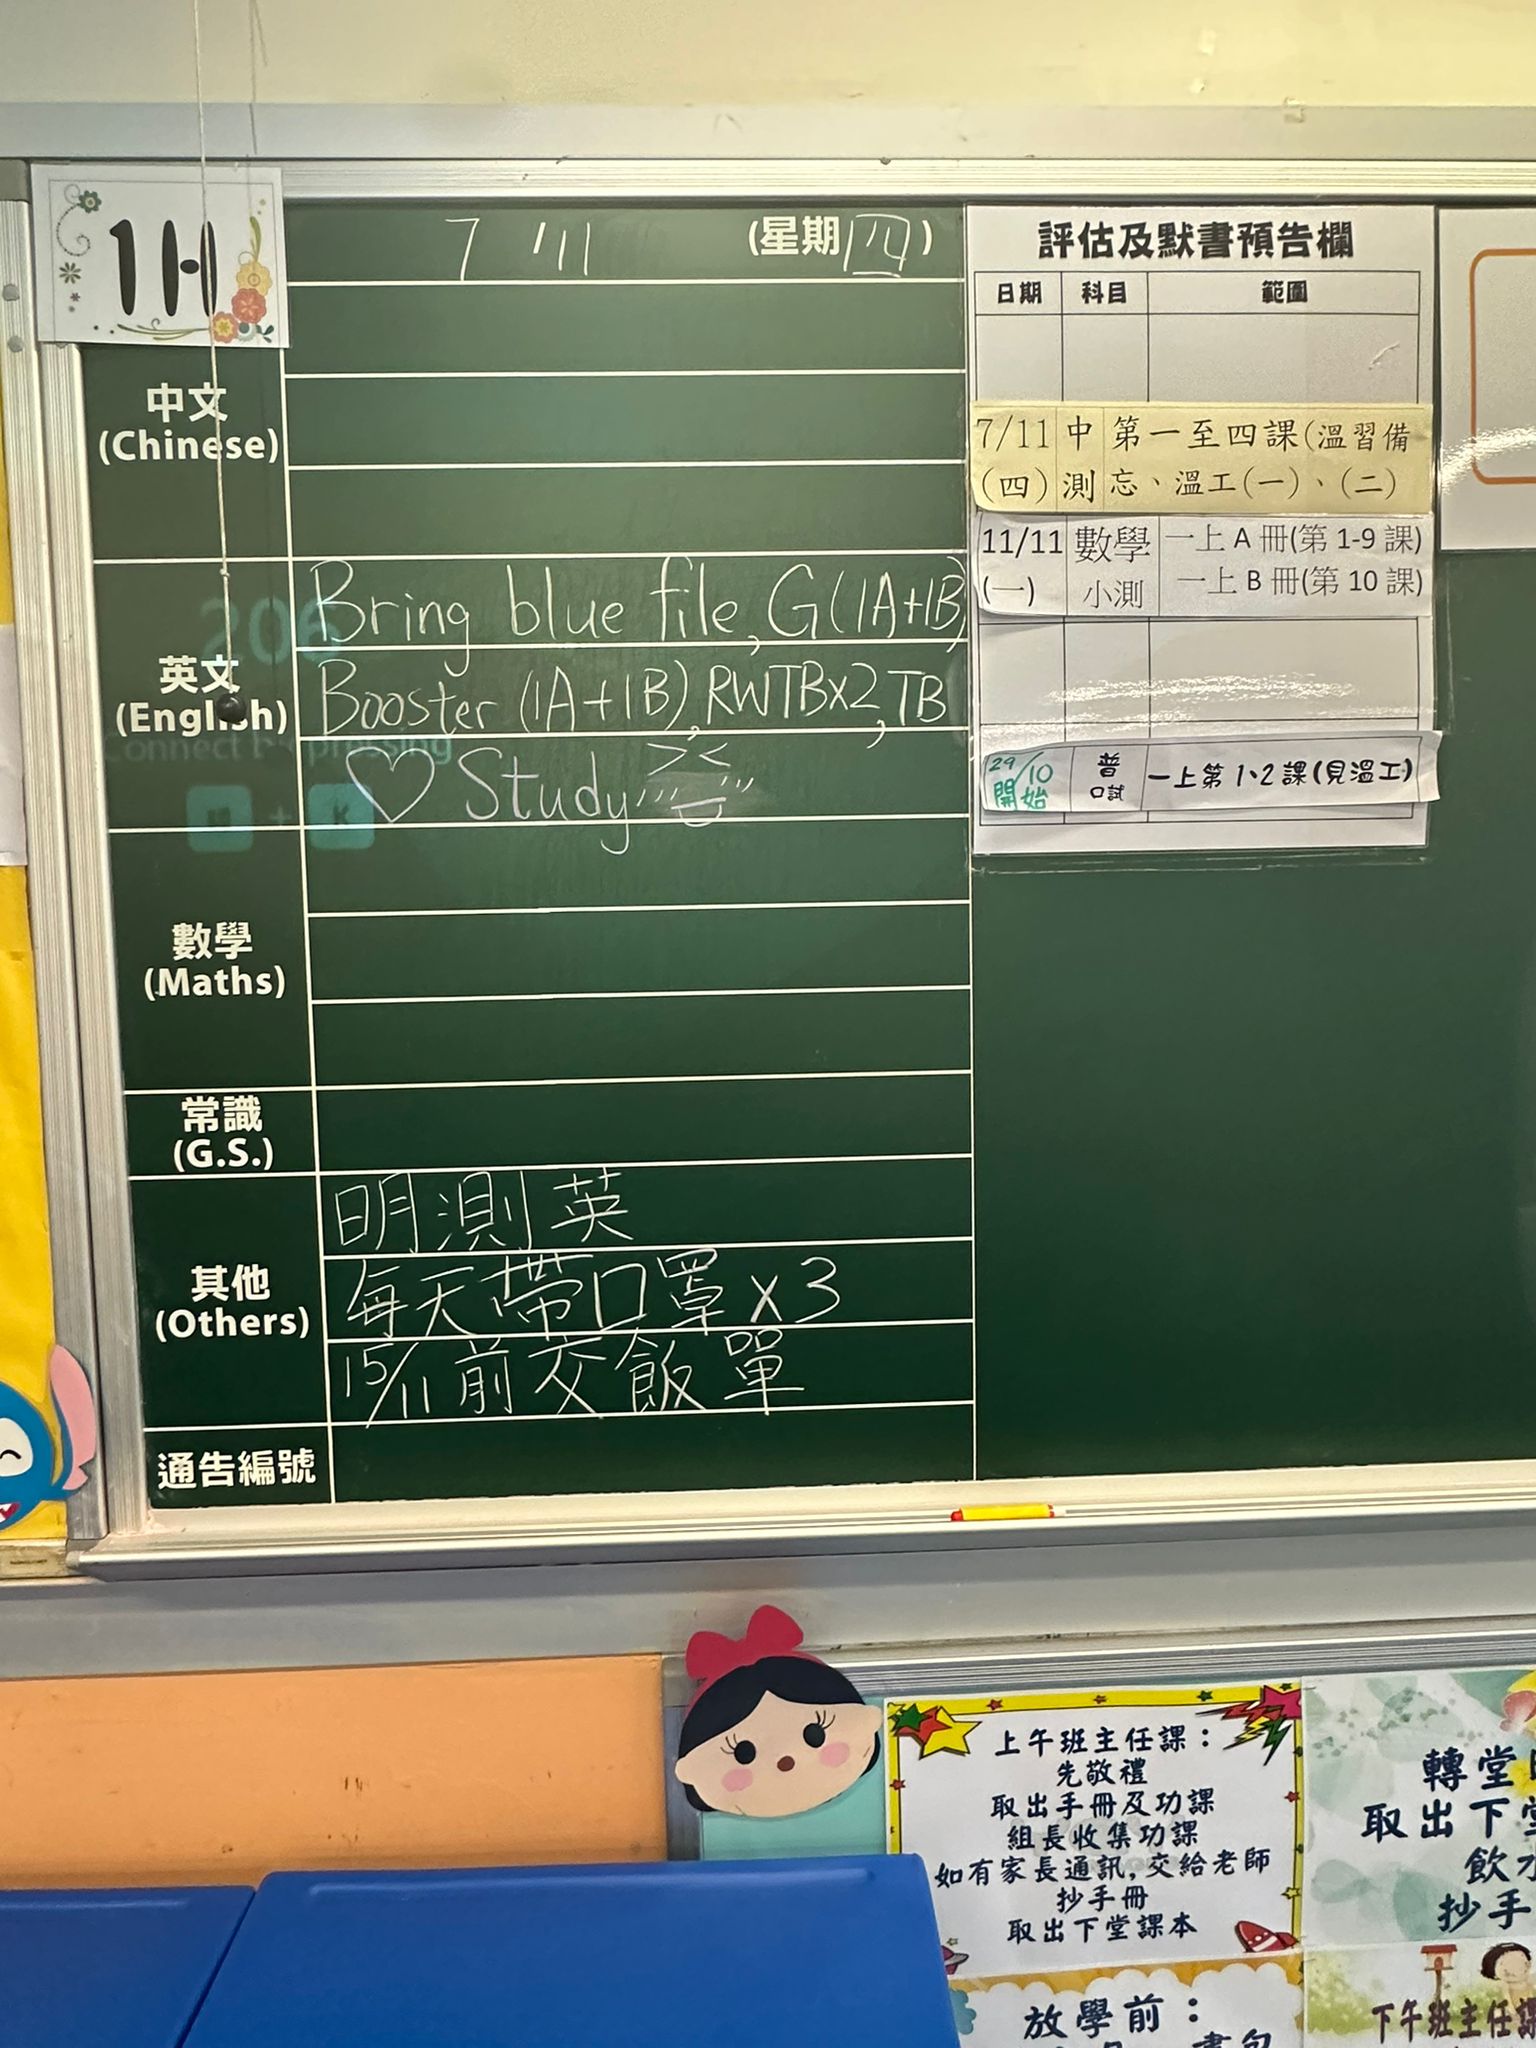 1H
7/11 (星期四)
中文
(Chinese)
英文
(English)
Bring blue file, G(1A+1B),
Booster (1A+1B), RWTBx2, TB
♡ Study
206
Connect by pressing
+ K
數學
(Maths)
常識
(G.S.)
其他
(Others)
明測英
每天帶口罩x3
15/11前交飯單
通告編號
評估及默書預告欄
日期 科目 範圍
7/11 中 第一至四課(溫習備
(四) 測 忘、溫工(一)、(二)
11/11 數學 一上 A 冊(第 1-9 課)
(一) 小測 一上 B 冊(第 10 課)
29/10 普 一上第1、2課(見溫工)
開始 口試
上午班主任課：
先敬禮
取出手冊及功課
組長收集功課
如有家長通訊, 交給老師
抄手冊
取出下堂課本
轉堂
取出下堂
飲水
抄手
放學前：
書包
下午班主任課